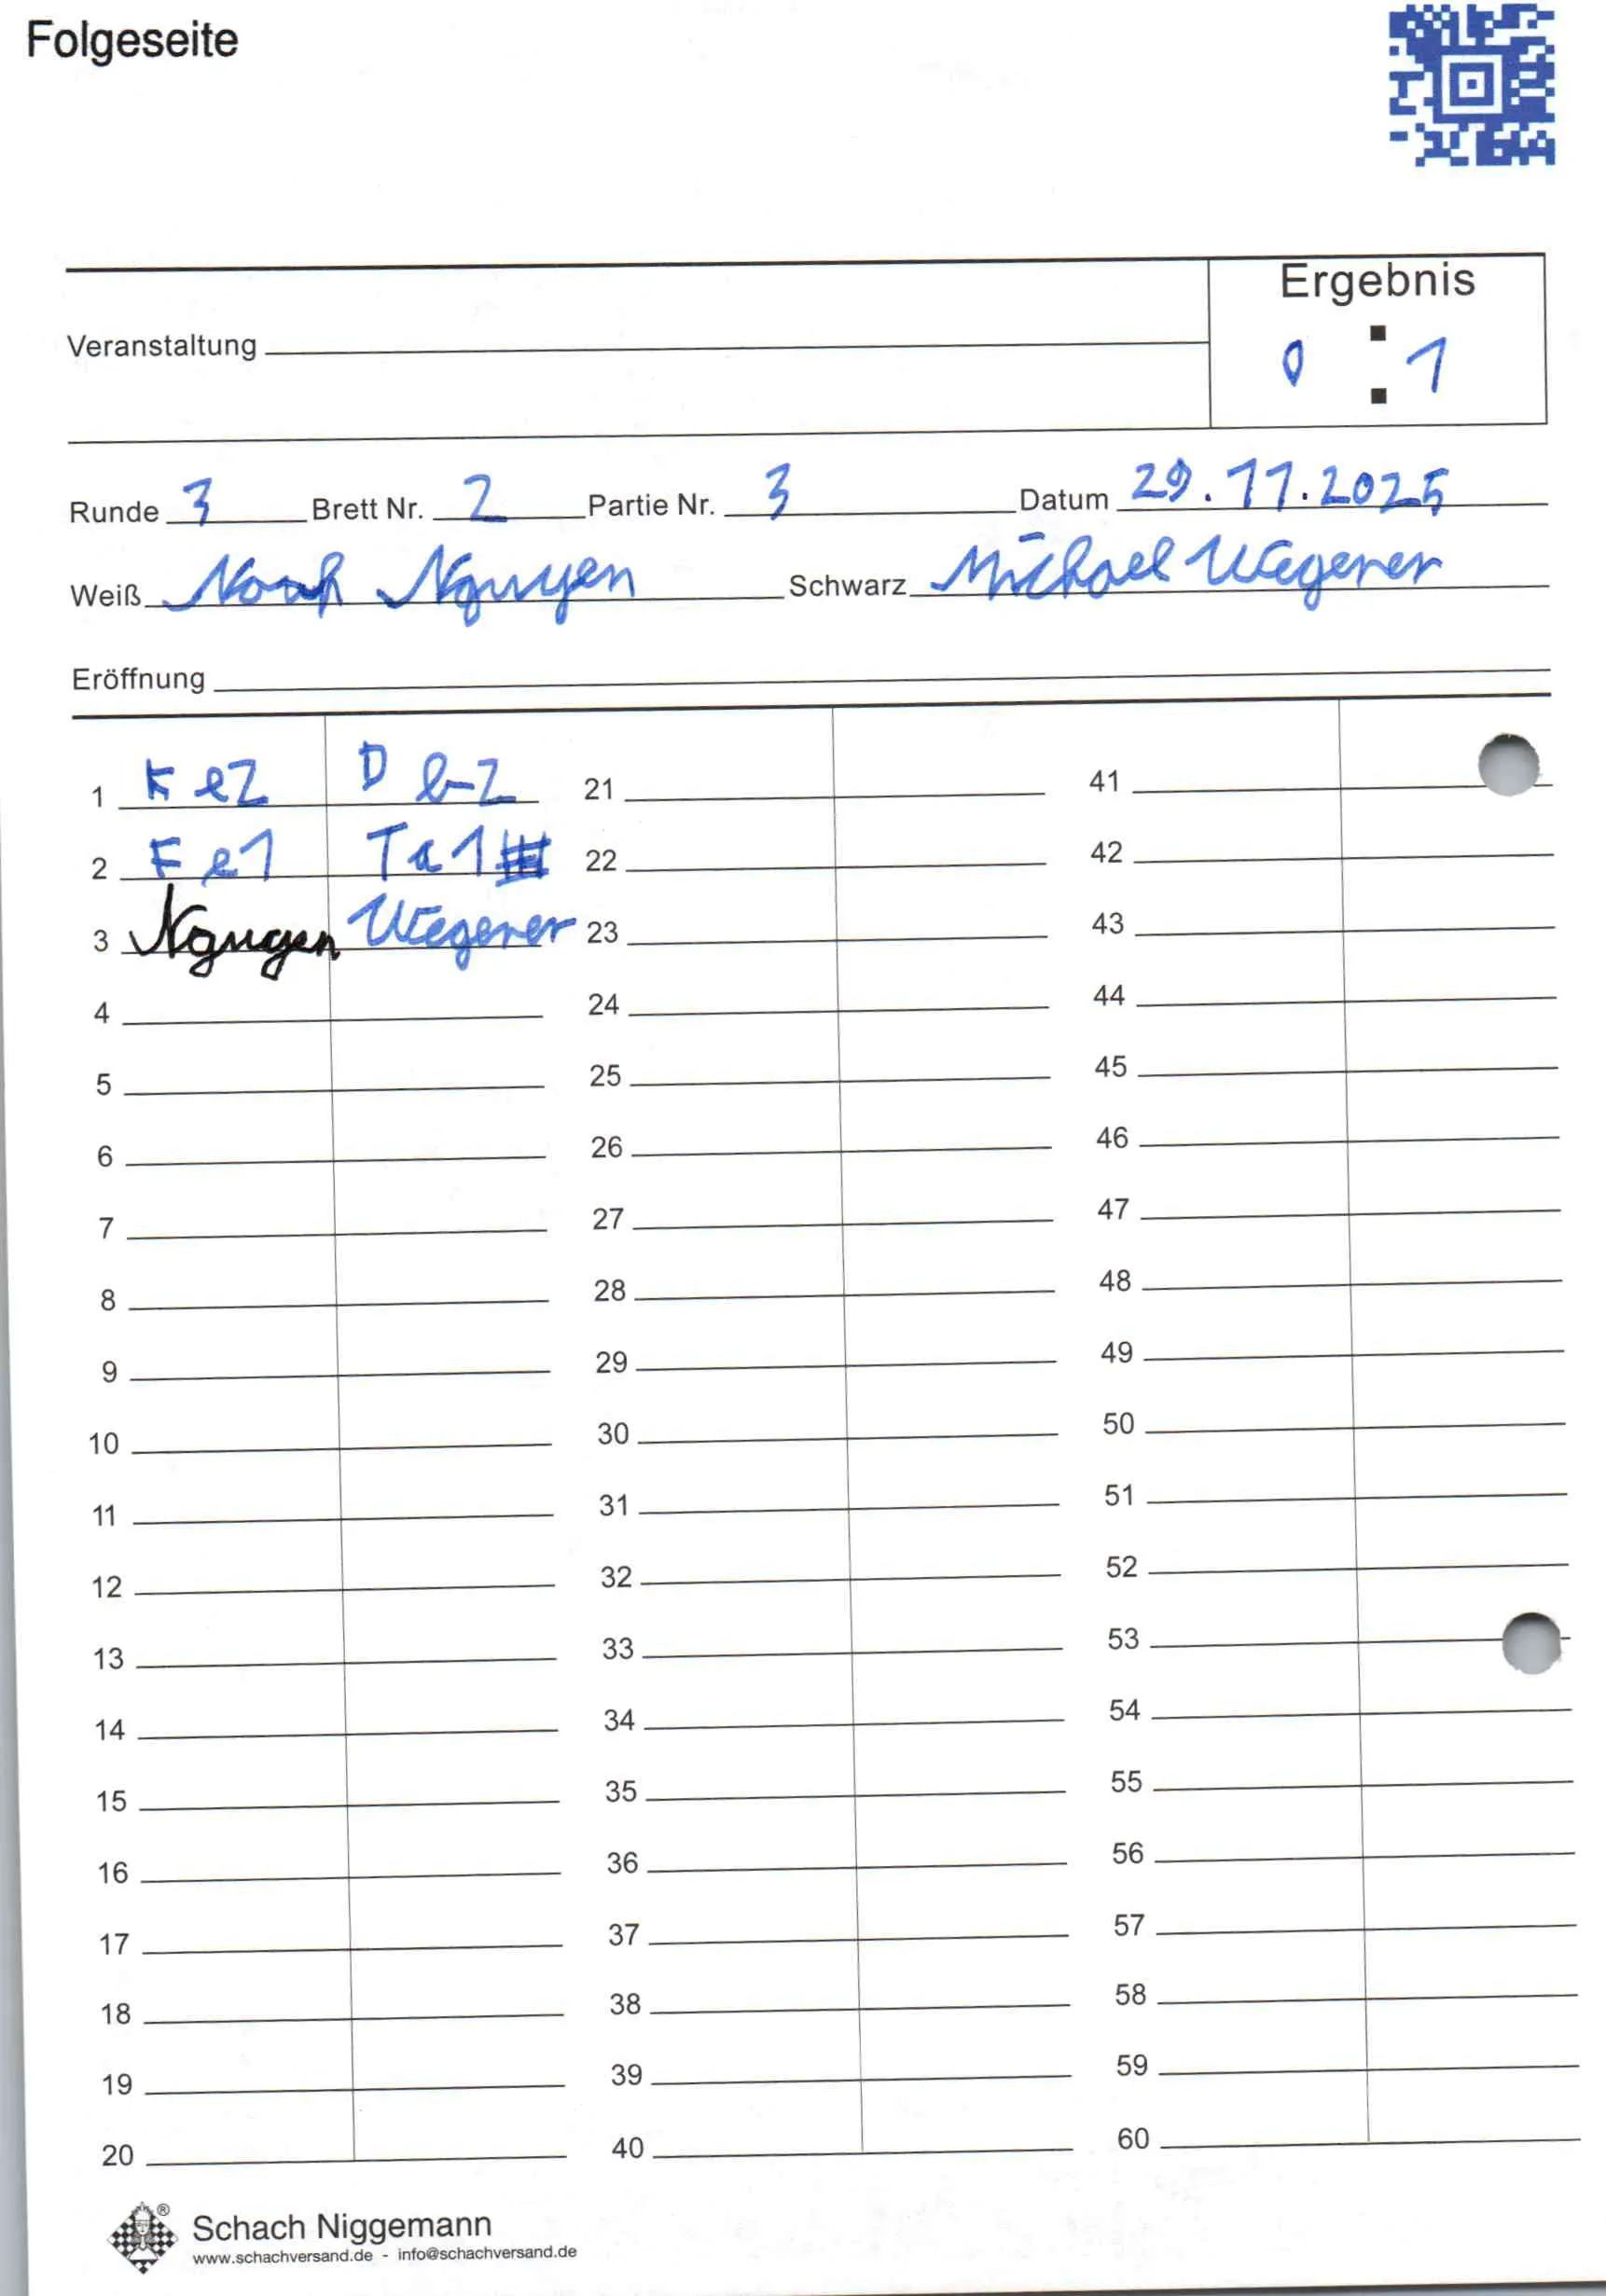 Folgeseite
Ergebnis
0 : 1
Veranstaltung
Runde 3 Brett Nr. 2 Partie Nr. 3 Datum 29.11.2025
Weiß Noah Nguyen Schwarz Michael Wegener
Eröffnung
1 K e2 D b2
2 K e1 Ta1#
3 Nguyen Wegener
4
5
6
7
8
9
10
11
12
13
14
15
16
17
18
19
20
21
22
23
24
25
26
27
28
29
30
31
32
33
34
35
36
37
38
39
40
41
42
43
44
45
46
47
48
49
50
51
52
53
54
55
56
57
58
59
60
®
Schach Niggemann
www.schachversand.de - info@schachversand.de